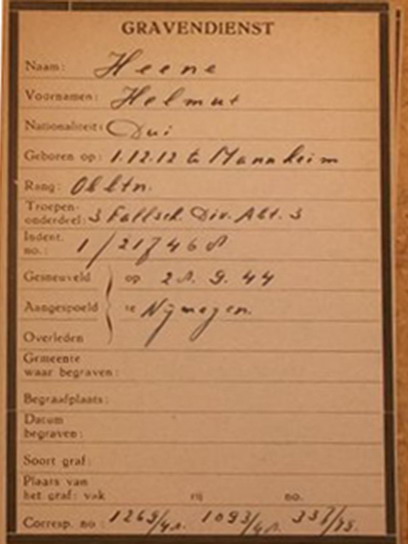 GRAVENDIENST
Naam: Heene
Voornamen: Helmut
Nationaliteit: Dui
Geboren op: 1.12.12 te Mannheim
Rang: Obltn.
Troepen-
onderdeel: 3 Fallsch. Div. Abt. 3
Indent.
no.: 1/217468
Gesneuveld
op 28.9.44
Aangespoeld
te Nijmegen.
Overleden
Gemeente
waar begraven:
Begraafplaats:
Datum
begraven:
Soort graf:
Plaats van
het graf: vak rij no.
Corresp. no: 1269/48. 1093/48. 337/